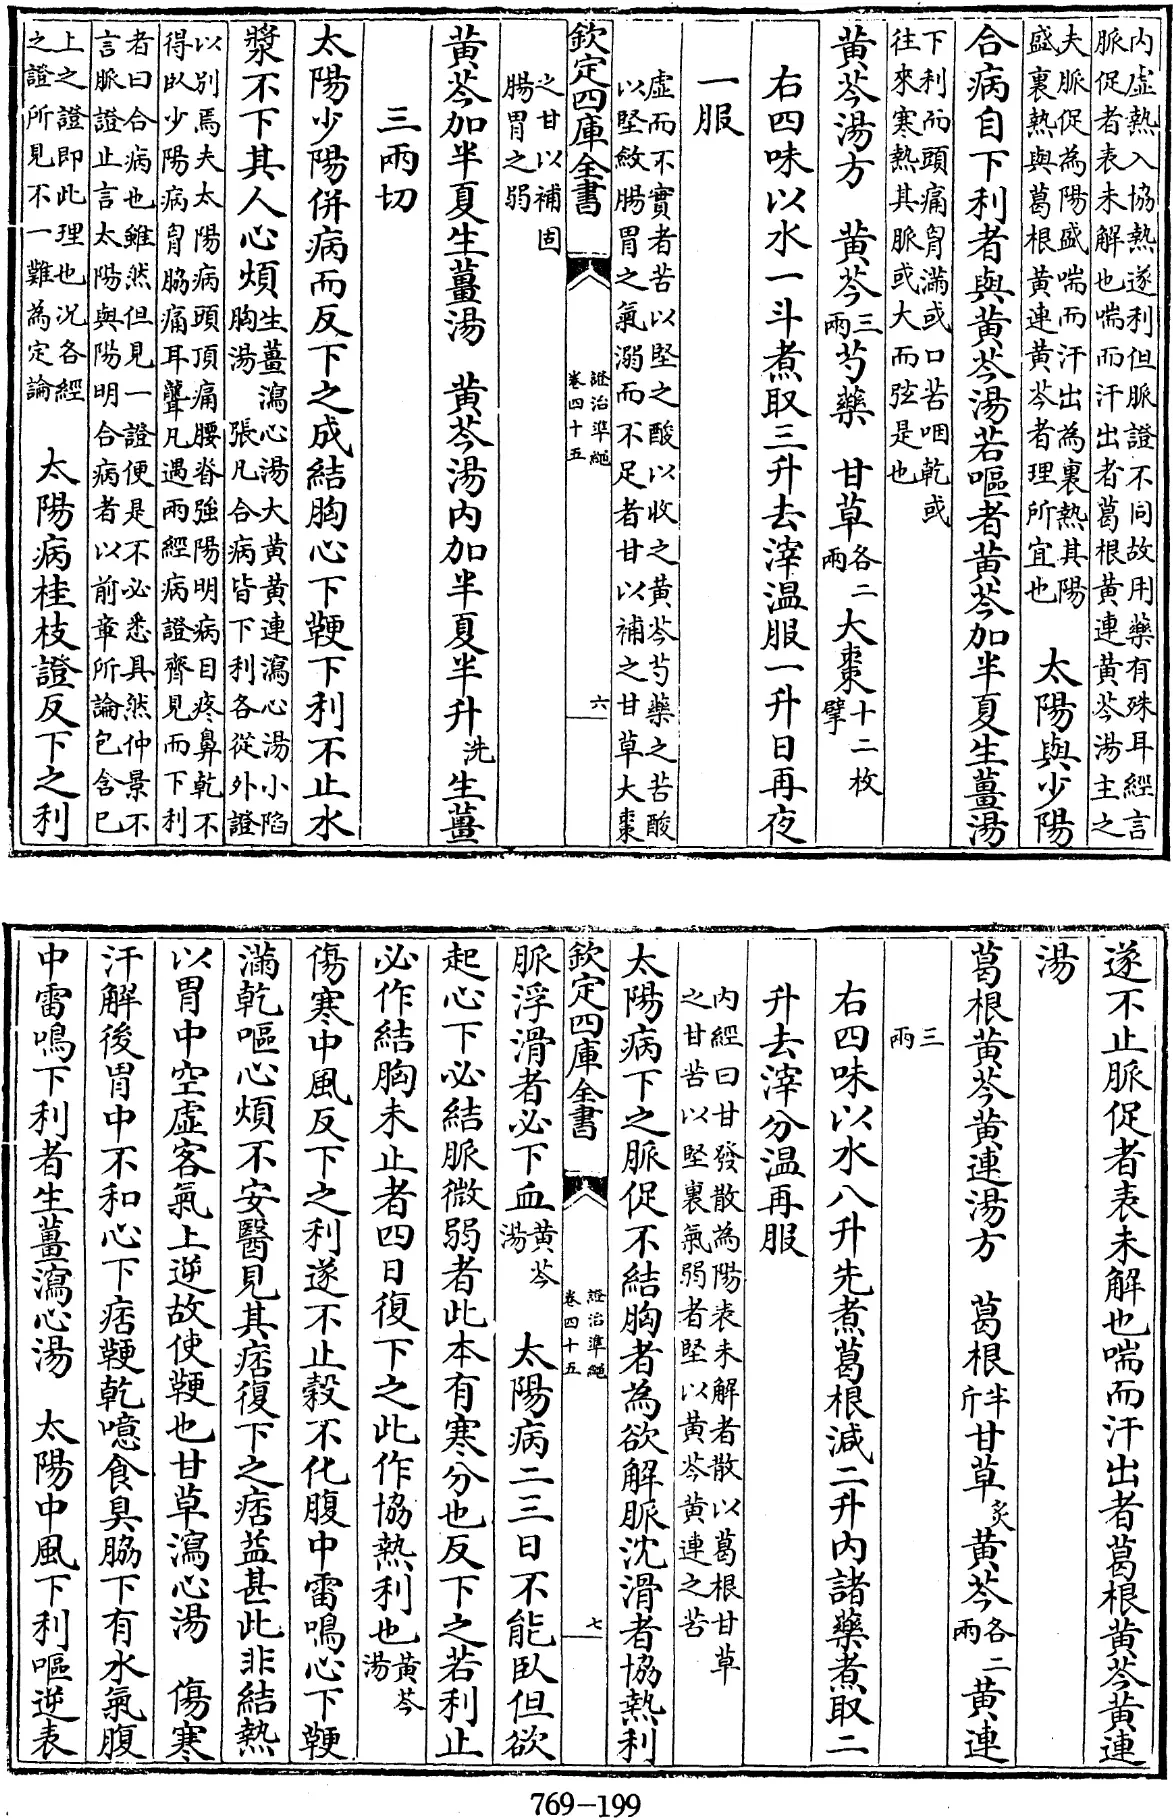 内虛熱入協熱遂利但脈證不同故用藥有殊耳經言
脈促者表未解也喘而汗出者葛根黃連黃芩湯主之
夫脈促為陽盛喘而汗出為裏熱其陽
盛裏熱與葛根黃連黃芩者理所宜也　太陽與少陽
合病自下利者與黃芩湯若嘔者黃芩加半夏生薑湯
下利而頭痛胷滿或口苦咽乾或
往來寒熱其脈或大而弦是也
黃芩湯方　黃芩三兩芍藥　甘草各二兩大棗十二枚擘
右四味以水一斗煮取三升去滓温服一升日再夜
一服
虛而不實者苦以堅之酸以收之黃芩芍藥之苦酸
以堅斂腸胃之氣溺而不足者甘以補之甘草大棗
欽定四庫全書　證治準繩卷四十五　六
之甘以補固
腸胃之弱
黃芩加半夏生薑湯　黃芩湯内加半夏半升洗生薑
三兩切
太陽少陽併病而反下之成結胸心下鞕下利不止水
漿不下其人心煩生薑瀉心湯大黃黃連瀉心湯小陷胸湯　張凡合病皆下利各從外證
以别焉夫太陽病頭項痛腰脊強陽明病目疼鼻乾不
得臥少陽病胷脇痛耳聾凡遇兩經病證齊見而下利
者曰合病也雖然但見一證便是不必悉具然仲景不
言脈證止言太陽與陽明合病者以前章所論包含已
上之證即此理也况各經
之證所見不一難為定論　太陽病桂枝證反下之利
遂不止脈促者表未解也喘而汗出者葛根黃芩黃連
湯
葛根黃芩黃連湯方　葛根半斤甘草炙黃芩各二兩黃連
三兩
右四味以水八升先煮葛根減二升内諸藥煮取二
升去滓分温再服
内經曰甘發散為陽表未解者散以葛根甘草
之甘苦以堅裏氣弱者堅以黃芩黃連之苦
太陽病下之脈促不結胸者為欲解脈沈滑者協熱利
欽定四庫全書　證治準繩卷四十五　七
脈浮滑者必下血黃芩湯　太陽病二三日不能臥但欲
起心下必結脈微弱者此本有寒分也反下之若利止
必作結胸未止者四日復下之此作協熱利也黃芩湯
傷寒中風反下之利遂不止穀不化腹中雷鳴心下鞕
滿乾嘔心煩不安醫見其痞復下之痞益甚此非結熱
以胃中空虛客氣上逆故使鞕也甘草瀉心湯　傷寒
汗解後胃中不和心下痞鞕乾噫食臭脇下有水氣腹
中雷鳴下利者生薑瀉心湯　太陽中風下利嘔逆表
769-199